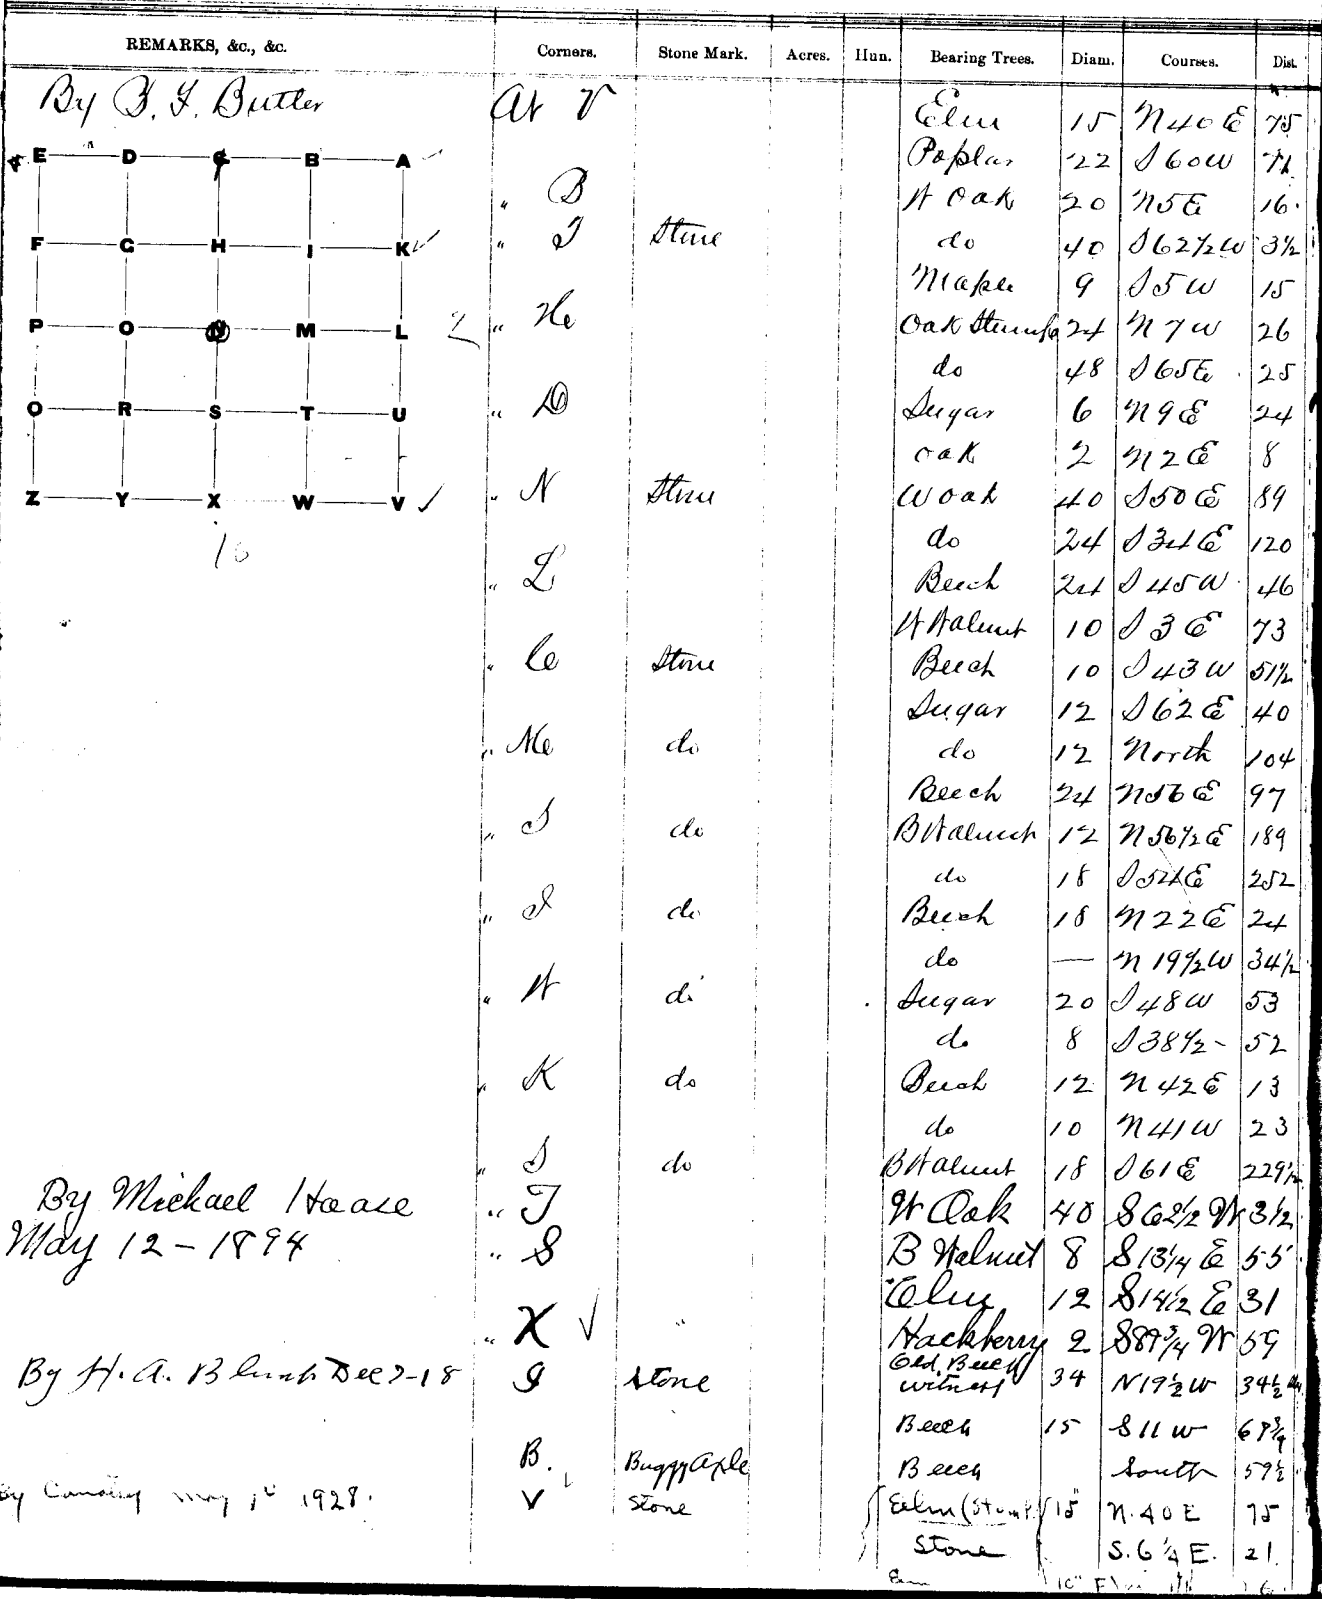 REMARKS, &c., &c. Corners. Stone Mark. Acres. Hun. Bearing Trees. Diam. Courses. Dist.
By Butler At V Elm 15 N40E 75
E D C B A Poplar 22 S60W 71
" B W Oak 20 N5E 16
F G H I K " T Stone do 40 S62½W 3½
Maple 9 S5W 15
P O N M L " Oak Stump 24 N7W 26
do 48 S65E 25
Q R S T U " D Sugar 6 N9E 24
oak 2 N2E 8
Z Y X W V " N Stone W oak 40 S50E 89
16 do 24 S34E 120
" L Beech 24 S45W 46
W Walnut 10 S3E 73
" C Stone Beech 10 S43W 51½
Sugar 12 S62E 40
" M do do 12 North 104
Beech 24 N56E 97
" S do B Walnut 12 N56½E 189
do 18 S54E 252
" I do Beech 18 N22E 24
do — N19½W 34½
" W do Sugar 20 S48W 53
do 8 S38½- 52
" K do Beech 12 N42E 13
do 10 N41W 23
" S do B Walnut 18 S61E 229½
By Michael Haase " T W Oak 40 S62½W 3½
May 12-1894 " S B Walnut 8 S13¼E 55
Elm 12 S14½E 31
" X " Hackberry 2 S89¾W 59
By H. A. Dec 2-18 I Stone Old Beech witness 34 N19½W 34½
Beech 15 S11W
B. Buggy Axle Beech South 59½
By May 1928. V Stone Elm (Stump) 15" N.40E 75
Stone S.6¼E. 21